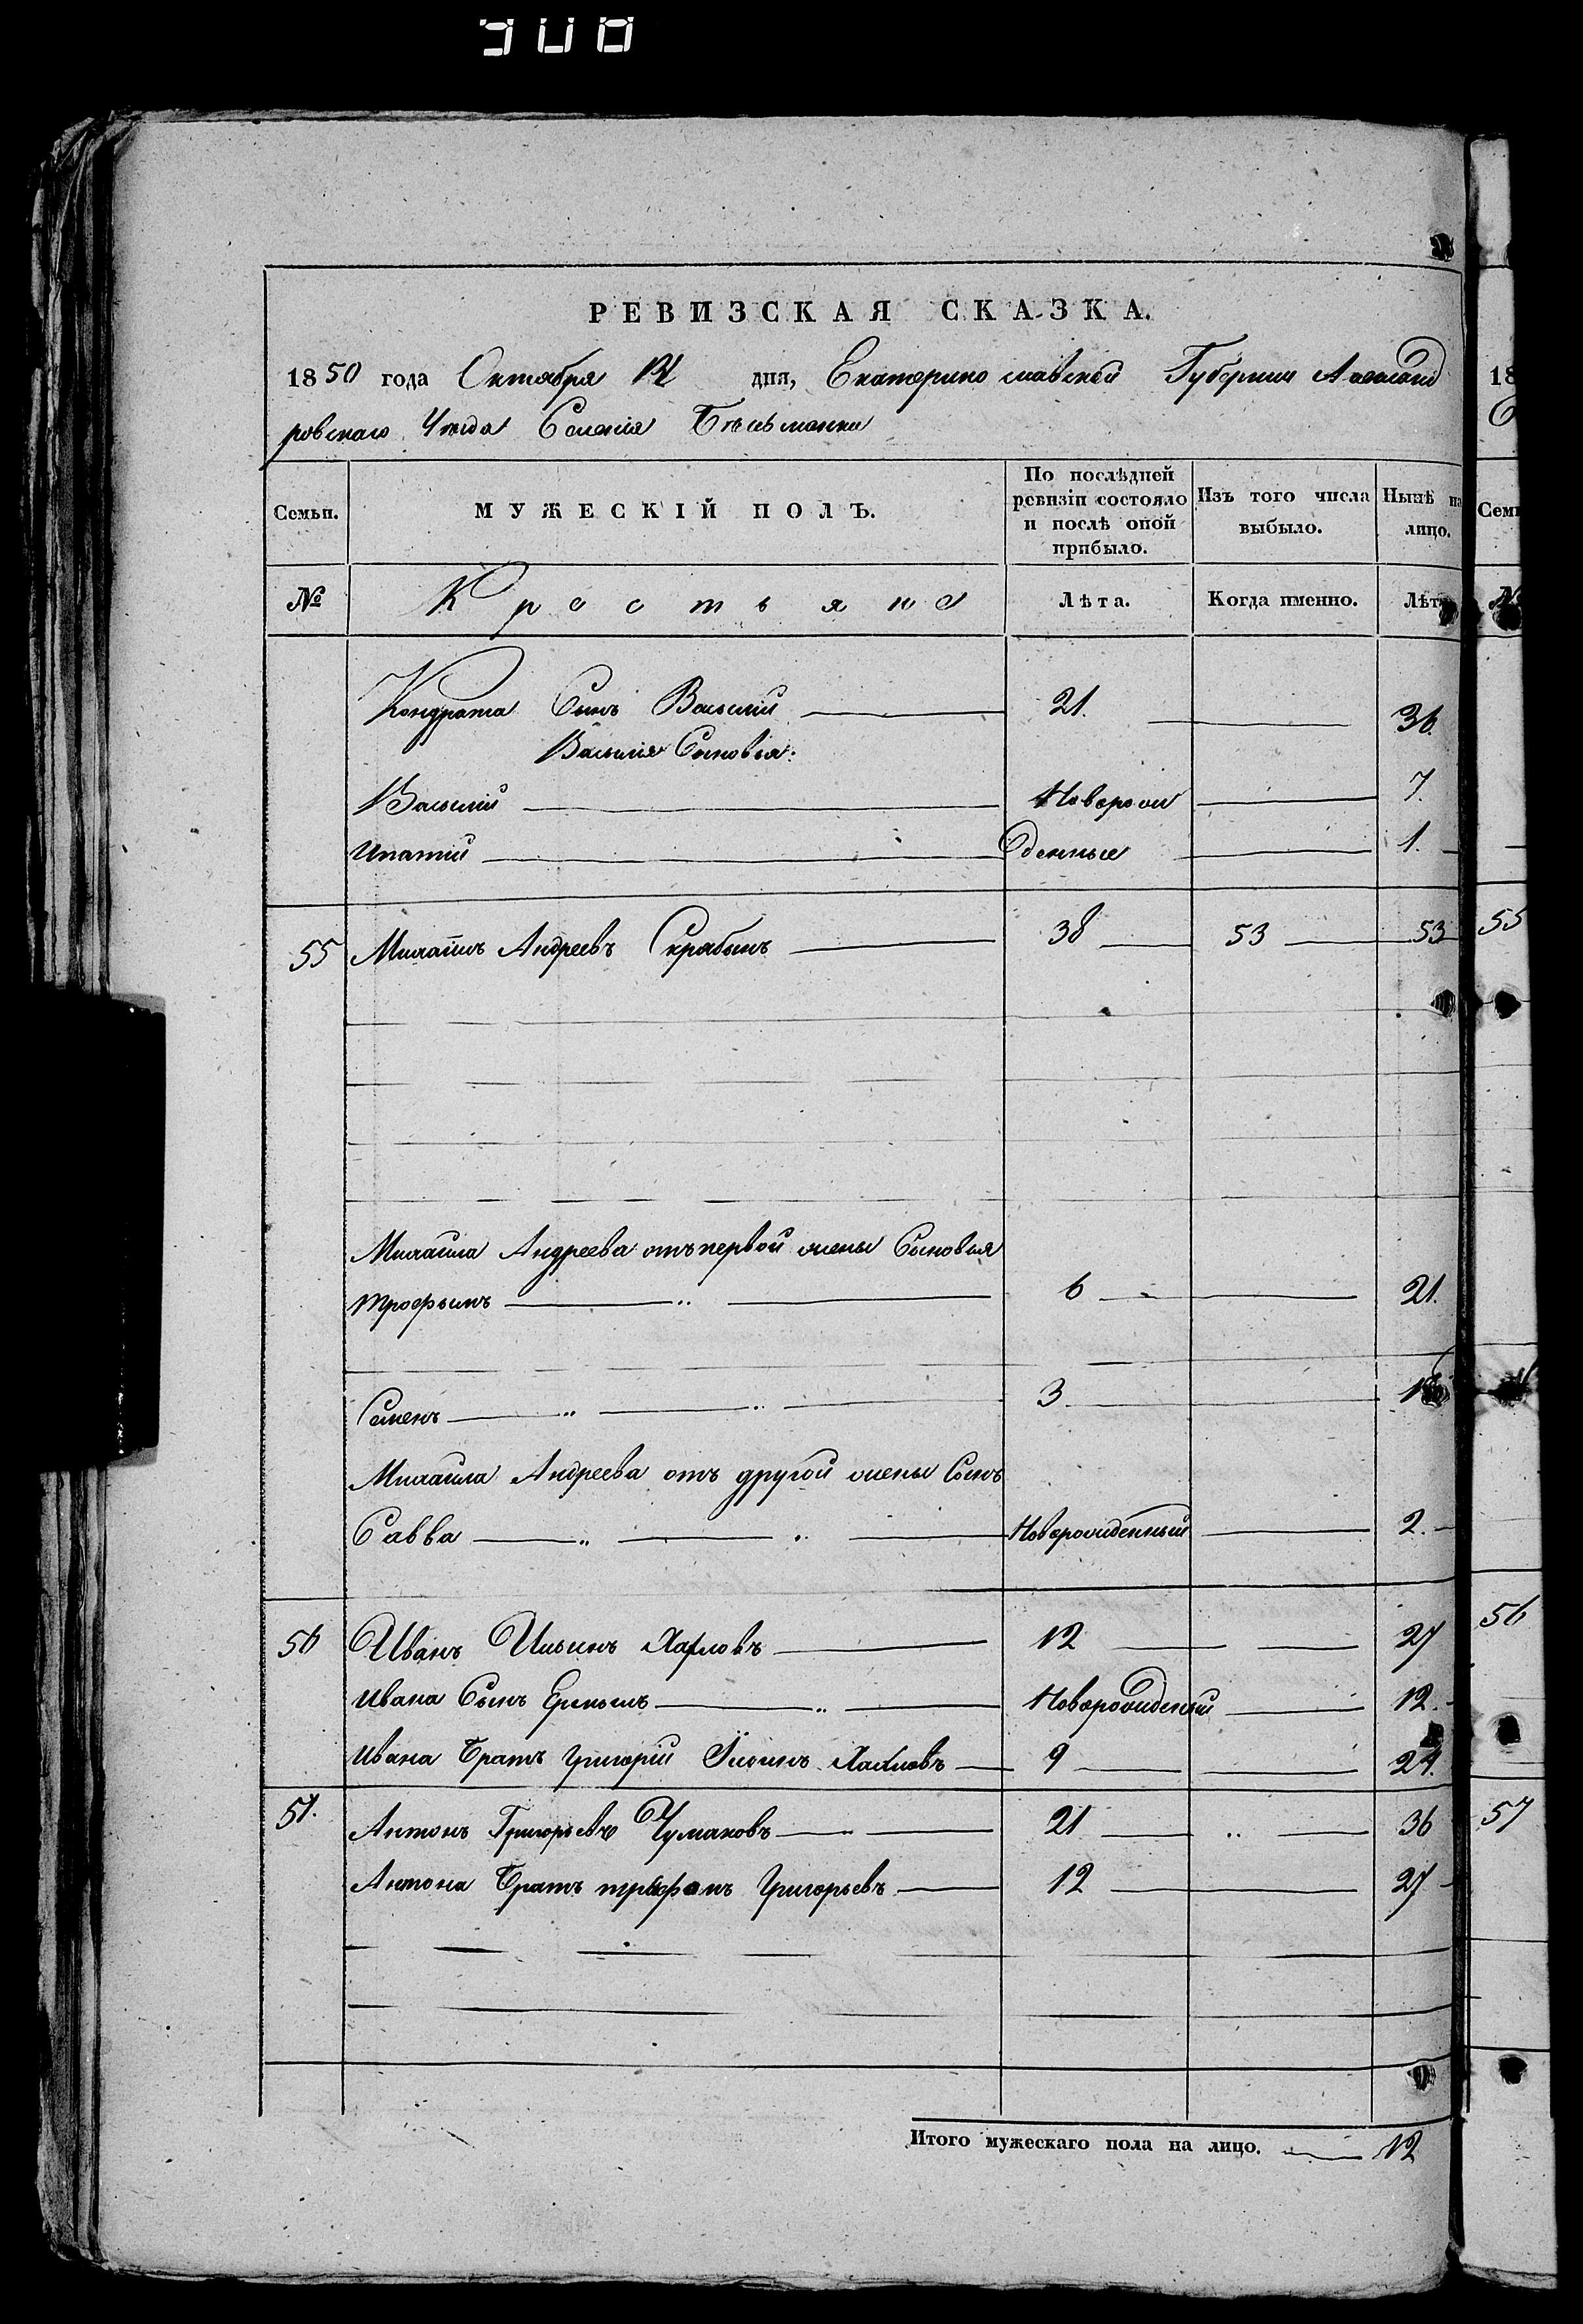 РЕВИЗСКАЯ СКАЗКА.
1850 года Октября 12 дня, Екатеринославской Губернии Александ
ровскаго Уезда Селенія Бѣсѣманки
Семьи. МУЖЕСКІЙ ПОЛЪ. По послѣдней ревизіи состояло и послѣ оной прибыло. Изъ того числа выбыло. Нынѣ на лицо.
№ Крестьяне Лѣта. Когда именно. Лѣта
Кондрата Сынъ Василий 21. 36.
Василия Сыновья:
Василий Новорож 7.
Ипатий денные 1.
55 Михаилъ Андреевъ Скрябинъ 38 53 53
Михаила Андреева отъ первой жены Сыновья
трофимъ 6 21.
Семенъ 3
Михаила Андреева отъ другой жены Сынъ
Савва Новорожденный 2.
56 Иванъ Ильинъ Харловъ 12 27
ивана Сынъ Ефимъ Новорожденый 12.
ивана Братъ Григорий Ильинъ 9 24.
57. Антонъ Григорьевъ Чумаковъ 21 36
Антона Братъ трифонъ Григорьевъ 12 27
Итого мужескаго пола на лицо. 12
18
Семи
№
55
56
57